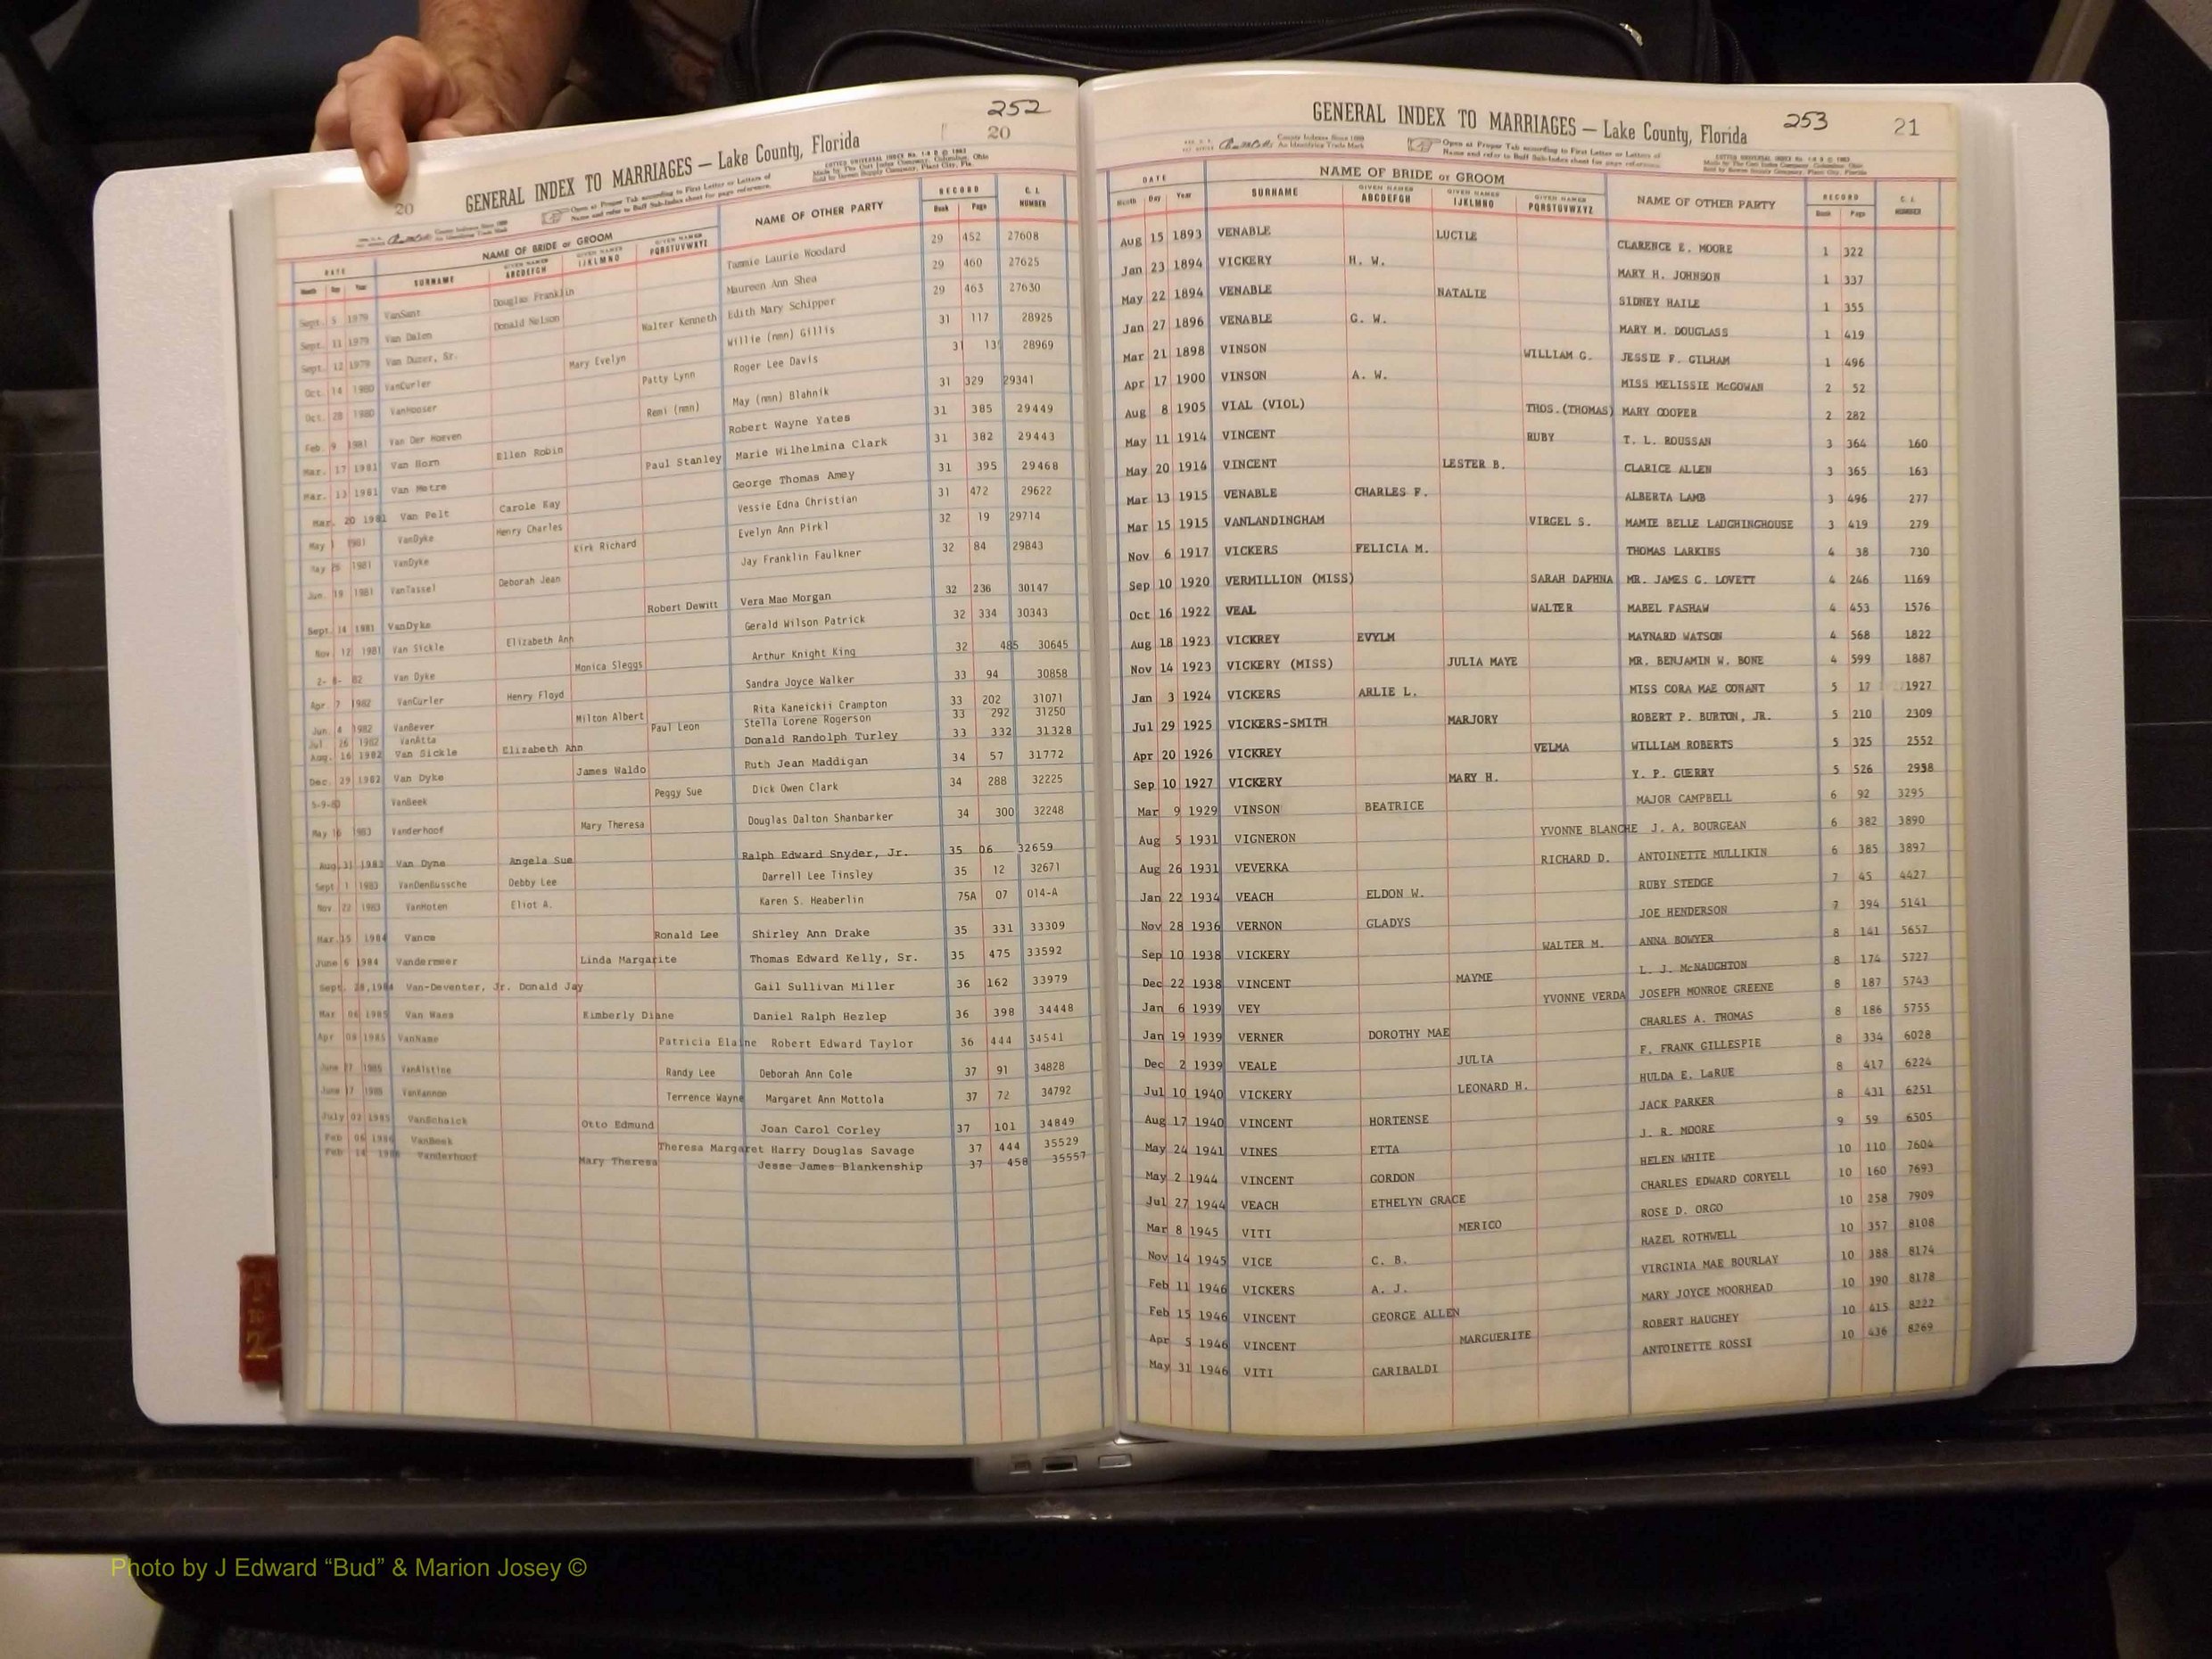 252
20
20
GENERAL INDEX TO MARRIAGES — Lake County, Florida
Open at Proper Tab according to First Letter or Letters of
Name and refer to Buff Sub-Index sheet for page reference.
DATE NAME OF BRIDE or GROOM NAME OF OTHER PARTY RECORD C. L.
Month Day Year SURNAME GIVEN NAMES ABCDEFGH GIVEN NAMES IJKLMNO GIVEN NAMES PQRSTUVWXYZ Book Page NUMBER
Sept. 5 1979 VanSant Douglas Franklin Tammie Laurie Woodard 29 452 27608
Sept. 11 1979 Van Dalen Donald Nelson Maureen Ann Shea 29 460 27625
Sept. 12 1979 Van Duzer, Sr. Walter Kenneth Edith Mary Schipper 29 463 27630
Oct. 14 1980 VanCurler Mary Evelyn Willie (nmn) Gillis 31 117 28925
Oct. 28 1980 VanHooser Patty Lynn Roger Lee Davis 31 13 28969
Feb. 9 1981 Van Der Hoeven Remi (nmn) May (nmn) Blahnik 31 329 29341
Mar. 17 1981 Van Horn Ellen Robin Robert Wayne Yates 31 385 29449
Mar. 13 1981 Van Metre Paul Stanley Marie Wilhelmina Clark 31 382 29443
Mar. 20 1981 Van Pelt Carole Kay George Thomas Amey 31 395 29468
May 1 1981 VanDyke Henry Charles Vessie Edna Christian 31 472 29622
May 25 1981 VanDyke Kirk Richard Evelyn Ann Pirkl 32 19 29714
Jun. 19 1981 VanTassel Deborah Jean Jay Franklin Faulkner 32 84 29843
Sept. 14 1981 VanDyke Robert Dewitt Vera Mae Morgan 32 236 30147
Nov. 12 1981 Van Sickle Elizabeth Ann Gerald Wilson Patrick 32 334 30343
2- 8- 82 Van Dyke Monica Sleggs Arthur Knight King 32 485 30645
Apr. 7 1982 VanCurler Henry Floyd Sandra Joyce Walker 33 94 30858
Jun. 4 1982 VanBever Milton Albert Rita Kaneickii Crampton 33 202 31071
Jul. 26 1982 VanAtta Paul Leon Stella Lorene Rogerson 33 292 31250
Aug. 16 1982 Van Sickle Elizabeth Ann Donald Randolph Turley 33 332 31328
Dec. 29 1982 Van Dyke James Waldo Ruth Jean Maddigan 34 57 31772
5-9-83 VanBeek Peggy Sue Dick Owen Clark 34 288 32225
May 16 1983 Vanderhoof Mary Theresa Douglas Dalton Shanbarker 34 300 32248
Aug. 31 1983 Van Dyne Angela Sue Ralph Edward Snyder, Jr. 35 06 32659
Sept 1 1983 VanDenBussche Debby Lee Darrell Lee Tinsley 35 12 32671
Nov 22 1983 VanHoten Eliot A. Karen S. Heaberlin 75A 07 014-A
Mar. 15 1984 Vance Ronald Lee Shirley Ann Drake 35 331 33309
June 6 1984 Vandermeer Linda Margarite Thomas Edward Kelly, Sr. 35 475 33592
Sept. 28, 1984 Van-Deventer, Jr. Donald Jay Gail Sullivan Miller 36 162 33979
Mar 06 1985 Van Waes Kimberly Diane Daniel Ralph Hezlep 36 398 34448
Apr 08 1985 VanName Patricia Elaine Robert Edward Taylor 36 444 34541
June 27 1985 VanAlstine Randy Lee Deborah Ann Cole 37 91 34828
June 17 1985 VanKannon Terrence Wayne Margaret Ann Mottola 37 72 34792
July 02 1985 VanSchaick Otto Edmund Joan Carol Corley 37 101 34849
Feb 06 1986 VanBeek Theresa Margaret Harry Douglas Savage 37 444 35529
Feb 14 1986 Vanderhoof Mary Theresa Jesse James Blankenship 37 458 35557
253
21
GENERAL INDEX TO MARRIAGES — Lake County, Florida
Open at Proper Tab according to First Letter or Letters of
Name and refer to Buff Sub-Index sheet for page reference.
DATE NAME OF BRIDE or GROOM NAME OF OTHER PARTY RECORD C. L.
Month Day Year SURNAME GIVEN NAMES ABCDEFGH GIVEN NAMES IJKLMNO GIVEN NAMES PQRSTUVWXYZ Book Page NUMBER
Aug 15 1893 VENABLE LUCILE CLARENCE E. MOORE 1 322
Jan 23 1894 VICKERY H. W. MARY H. JOHNSON 1 337
May 22 1894 VENABLE NATALIE SIDNEY HAILE 1 355
Jan 27 1896 VENABLE G. W. MARY M. DOUGLASS 1 419
Mar 21 1898 VINSON WILLIAM G. JESSIE F. GILHAM 1 496
Apr 17 1900 VINSON A. W. MISS MELISSIE McGOWAN 2 52
Aug 8 1905 VIAL (VIOL) THOS. (THOMAS) MARY COOPER 2 282
May 11 1914 VINCENT RUBY T. L. ROUSSAN 3 364 160
May 20 1914 VINCENT LESTER B. CLARICE ALLEN 3 365 163
Mar 13 1915 VENABLE CHARLES F. ALBERTA LAMB 3 496 277
Mar 15 1915 VANLANDINGHAM VIRGEL S. MAMIE BELLE LAUGHINGHOUSE 3 419 279
Nov 6 1917 VICKERS FELICIA M. THOMAS LARKINS 4 38 730
Sep 10 1920 VERMILLION (MISS) SARAH DAPHNA MR. JAMES G. LOVETT 4 246 1169
Oct 16 1922 VEAL WALTER MABEL FASHAW 4 453 1576
Aug 18 1923 VICKREY EVYLM MAYNARD WATSON 4 568 1822
Nov 14 1923 VICKERY (MISS) JULIA MAYE MR. BENJAMIN W. BONE 4 599 1887
Jan 3 1924 VICKERS ARLIE L. MISS CORA MAE CONANT 5 17 1927
Jul 29 1925 VICKERS-SMITH MARJORY ROBERT P. BURTON, JR. 5 210 2309
Apr 20 1926 VICKREY VELMA WILLIAM ROBERTS 5 325 2552
Sep 10 1927 VICKERY MARY H. Y. P. GUERRY 5 526 2958
Mar 9 1929 VINSON BEATRICE MAJOR CAMPBELL 6 92 3295
Aug 5 1931 VIGNERON YVONNE BLANCHE J. A. BOURGEAN 6 382 3890
Aug 26 1931 VEVERKA RICHARD D. ANTOINETTE MULLIKIN 6 385 3897
Jan 22 1934 VEACH ELDON W. RUBY STEDGE 7 45 4427
Nov 28 1936 VERNON GLADYS JOE HENDERSON 7 394 5141
Sep 10 1938 VICKERY WALTER M. ANNA BOWYER 8 141 5657
Dec 22 1938 VINCENT MAYME L. J. McNAUGHTON 8 174 5727
Jan 6 1939 VEY YVONNE VERDA JOSEPH MONROE GREENE 8 187 5743
Jan 19 1939 VERNER DOROTHY MAE CHARLES A. THOMAS 8 186 5755
Dec 2 1939 VEALE JULIA F. FRANK GILLESPIE 8 334 6028
Jul 10 1940 VICKERY LEONARD H. HULDA E. LaRUE 8 417 6224
Aug 17 1940 VINCENT HORTENSE JACK PARKER 8 431 6251
May 24 1941 VINES ETTA J. R. MOORE 9 59 6505
May 2 1944 VINCENT GORDON HELEN WHITE 10 110 7604
Jul 27 1944 VEACH ETHELYN GRACE CHARLES EDWARD CORYELL 10 160 7693
Mar 8 1945 VITI MERICO ROSE D. ORGO 10 258 7909
Nov 14 1945 VICE C. B. HAZEL ROTHWELL 10 357 8108
Feb 11 1946 VICKERS A. J. VIRGINIA MAE BOURLAY 10 388 8174
Feb 15 1946 VINCENT GEORGE ALLEN MARY JOYCE MOORHEAD 10 390 8178
Apr 5 1946 VINCENT MARGUERITE ROBERT HAUGHEY 10 415 8222
May 31 1946 VITI GARIBALDI ANTOINETTE ROSSI 10 436 8269
Photo by J Edward “Bud” & Marion Josey ©